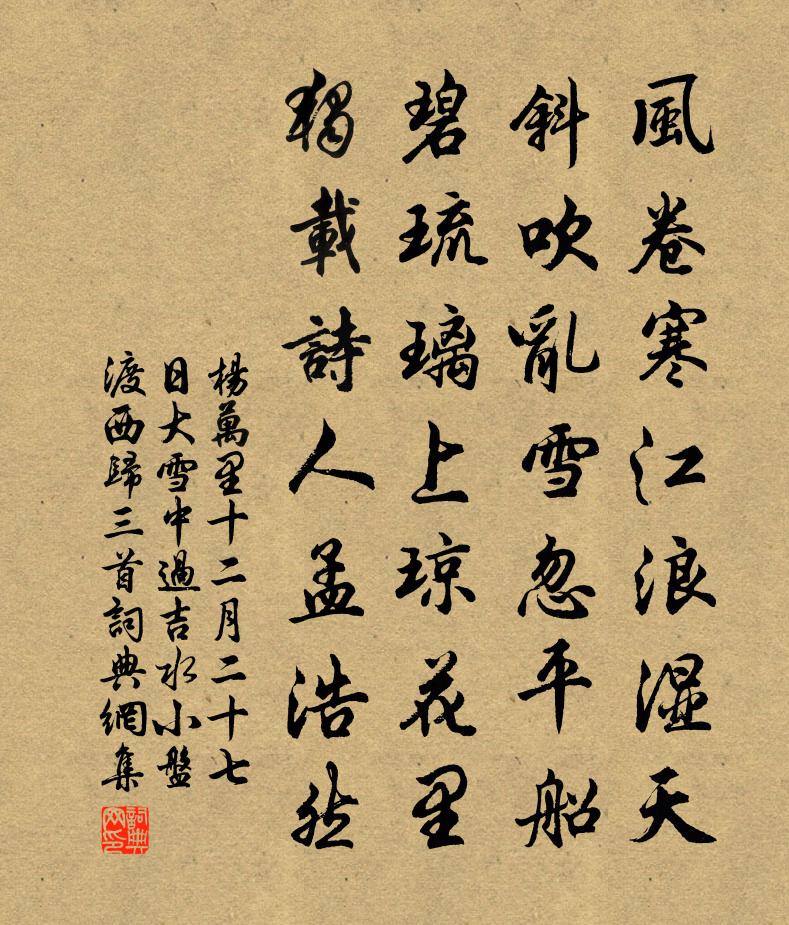 風卷寒江浪濕天
斜吹亂雪忽平船
碧琉璃上瓊花里
獨載詩人孟浩然
楊萬里十二月二十七
日大雪中過吉水小盤
渡西歸三首詞典網集
詞典網印